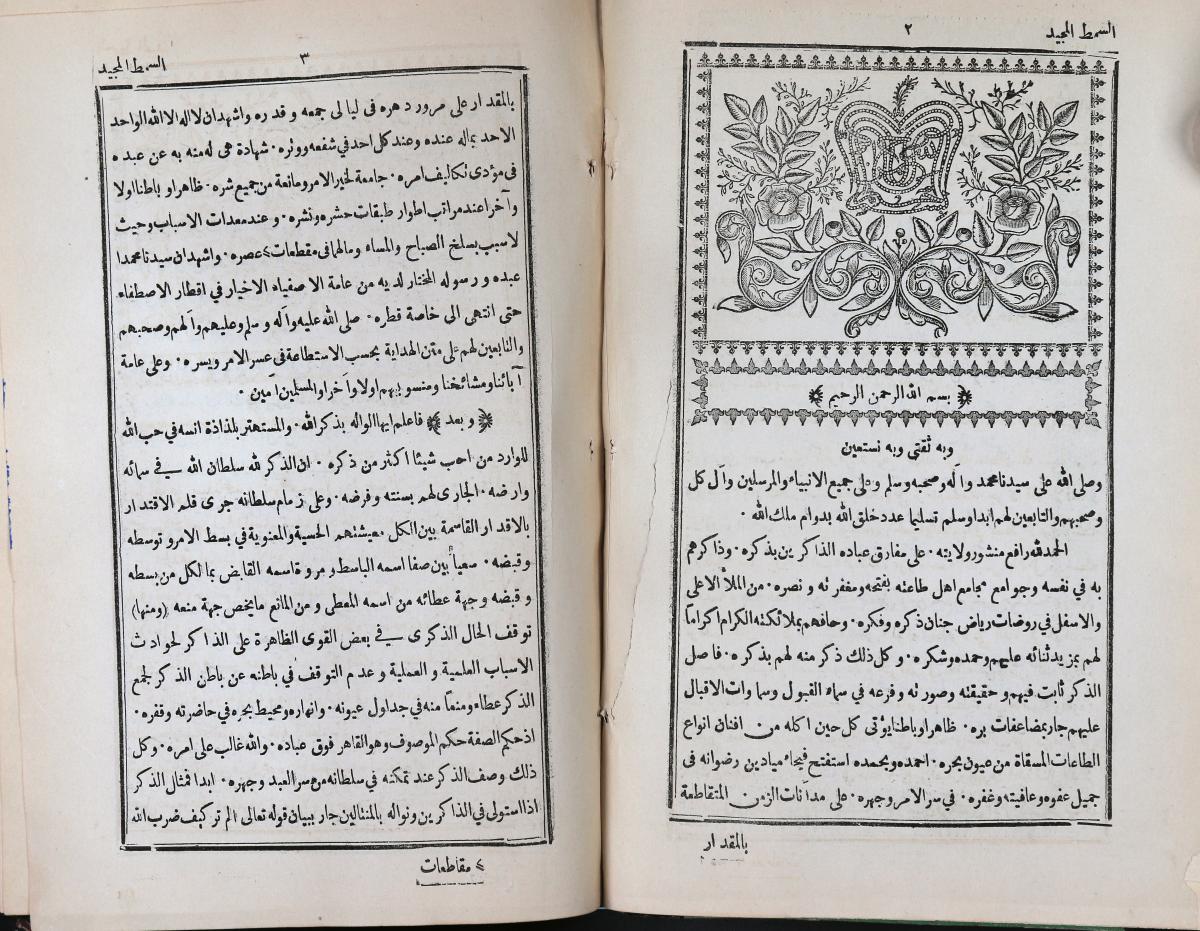 السمط المجيد
٢
بسم الله الرحمن الرحيم
وبه ثقتى وبه نستعين
وصلى الله على سيدنا محمد وآله وصحبه وسلم وعلى جميع الانبياء والمرسلين وآل كل
وصحبهم والتابعين لهم ابدا وسلم تسليما عدد خلق الله بدوام ملك الله ٠
الحمد لله رافع منشور ولايته ٠ على مفارق عباده الذاكرين بذكره ٠ وذاكرهم
به في نفسه وجوامع مجامع اهل طاعته بفتحه ومغفرته و نصره ٠ من الملأ الاعلى
والاسفل في روضات رياض جنان ذكره وفكره ٠ وحافهم بملائكته الكرام اكراماً
لهم بمزيد ثنائه عليهم وحمده وشكره ٠ وكل ذلك ذكر منه لهم بذكره ٠ فاصل
الذكر ثابت فيهم وحقيقته وصورته وفرعه في سماء القبول وسماوات الاقبال
عليهم جار بمضاعفات بره ٠ ظاهرا وباطنا يؤتى كل حين اكله من افنان انواع
الطاعات المسقاة من عيون بحره ٠ احمده وبحمده استفتح فيحاء ميادين رضوانه فى
جميل عفوه وعافيته وغفره ٠ في سر الامر وجهره ٠ على مدآنات الزمن المتقاطعة
بالمقدار
السمط المجيد
٣
بالمقدار على مرور دهره فى ليالى جمعه وقدره واشهد ان لا اله الا الله الواحد
الاحد بماله عنده وعند كل احد في شفعه ووتره ٠ شهادة هى له منه به عن عبده
فى مؤدى تكاليف امره ٠ جامعة لخير الامر ومانعة من جميع شره ٠ ظاهرا وباطنا اولا
وآخرا عند مراتب اطوار طبقات حشره ونشره ٠ وعند معدات الاسباب وحيث
لاسبب بسلخ الصباح والمساء ومالهما فى مقطعات ٤ عصره ٠ واشهد ان سيدنا محمدا
عبده ورسوله المختار لديه من عامة الاصفياء الاخيار في اقطار الاصطفاء
حتى انتهى الى خاصة قطره ٠ صلى الله عليه وآله وسلم وعليهم وآلهم وصحبهم
والتابعين لهم على متن الهداية بحسب الاستطاعة في عسر الامر ويسره ٠ وعلى عامة
آبائنا ومشائخنا ومنسوبيهم اولا وآخرا والمسلين آمين ٠
وبعد فاعلم ايها الواله بذكر الله ٠ والمستهتر بلذاذة انسه في حب الله
للوارد من احب شيئا اكثر من ذكره ٠ ان الذكر لله سلطان الله في سمائه
وارضه ٠ الجارى لهم بسنته وفرضه ٠ وعلى زمام سلطانه جرى قلم الاقتدار
بالاقدار القاسمة بين الكل معيشتهم الحسية والمعنوية في بسط الامر وتوسطه
وقبضه ٠ سعياً بين صفا اسمه الباسط ومروة اسمه القابض بما لكل من بسطه
وقبضه وجهة عطائه من اسمه المعطى ومن المانع ما يخص جهة منعه (ومنها)
توقف الحال الذكرى في بعض القوى الظاهرة على الذاكر لحوادث
الاسباب العلمية والعملية وعدم التوقف في باطنه عن باطن الذكر لجمع
الذكر عطاء ومنعاً منه في جداول عيونه ٠ وانهاره ومحيط بحره في حاضرته وقفره ٠
اذ حكم الصفة حكم الموصوف وهو القاهر فوق عباده ٠ والله غالب على امره ٠ وكل
ذلك وصف الذكر عند تمكنه في سلطانه من سر العبد وجهره ٠ ابدا فمثال الذكر
اذا استولى في الذاكرين ونواله بالمثالين جار ببيان قوله تعالى الم تر كيف ضرب الله
٤ مقاطعات